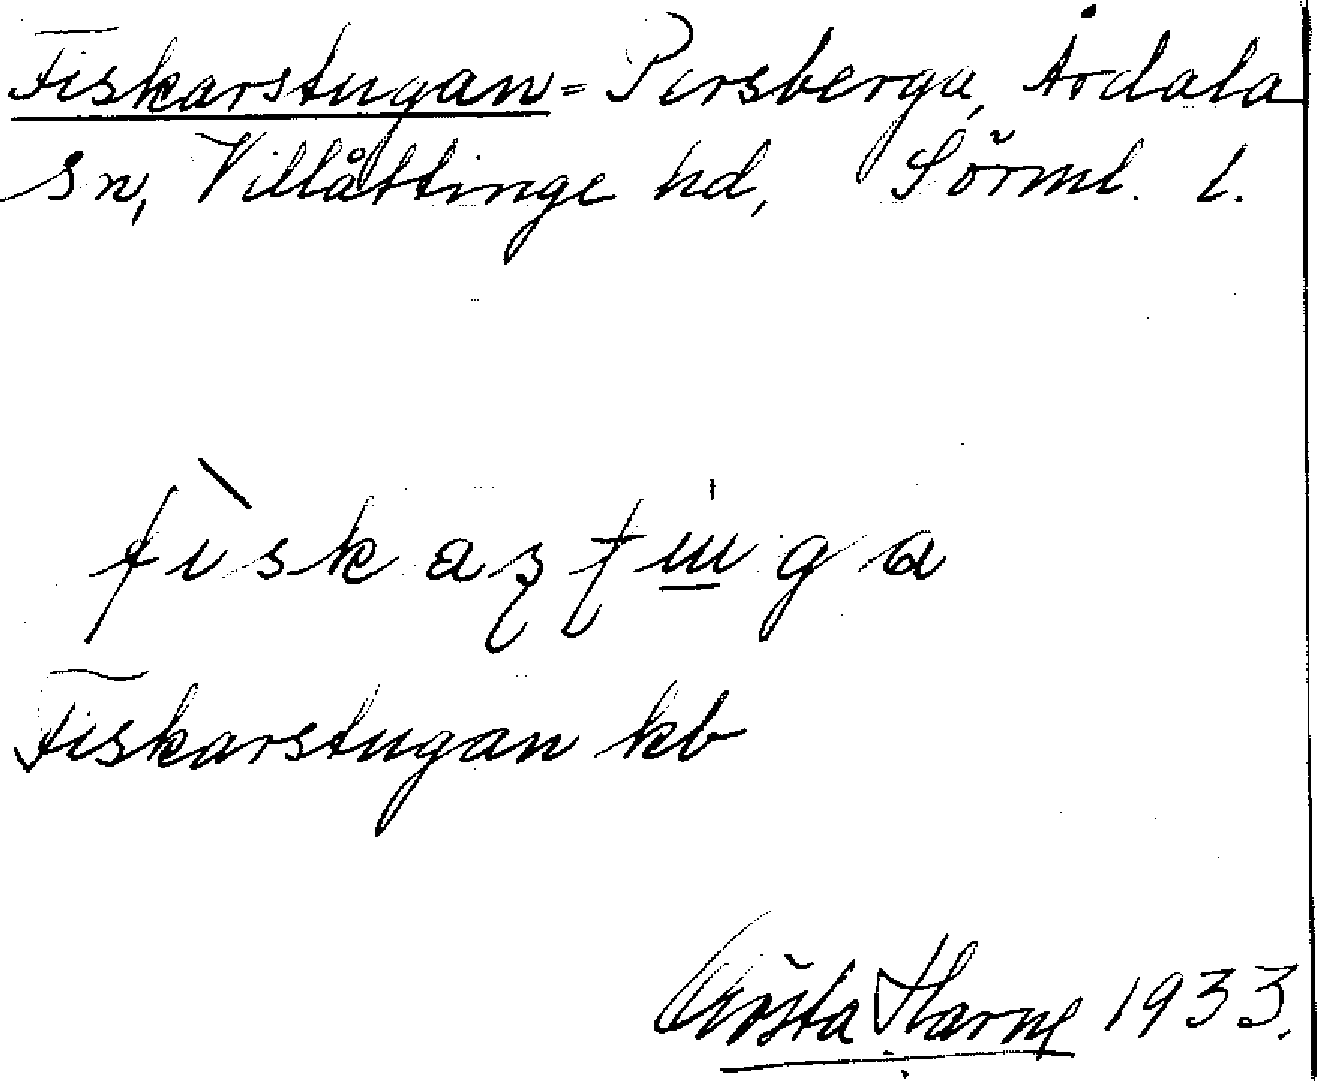 Fiskarstugan = Persberga, Årdala
Sn, Villåttinge hd, Sörml. l.
fìskaʂʈu̲ga
Fiskarstugan kb
Gösta Harne 1933.